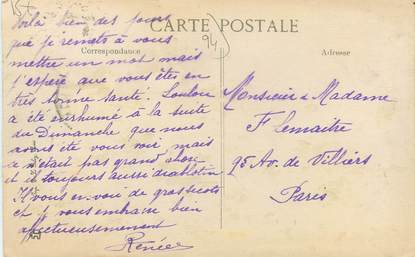 CARTE POSTALE
Correspondance
Adresse
94
Voilà bien des jours
que je remets à vous
mettre un mot mais
j'espère que vous êtes en
très bonne santé. Loulou
a été enrhumé à la suite
du Dimanche que nous
avons été vous voir mais
ce n'était pas grand chose
et il est toujours aussi diablotin
Il vous envoie de gros bécots
et je vous embrasse bien
affectueusement
Renée
Monsieur & Madame
F Lemaitre
95 Av. de Villiers
Paris